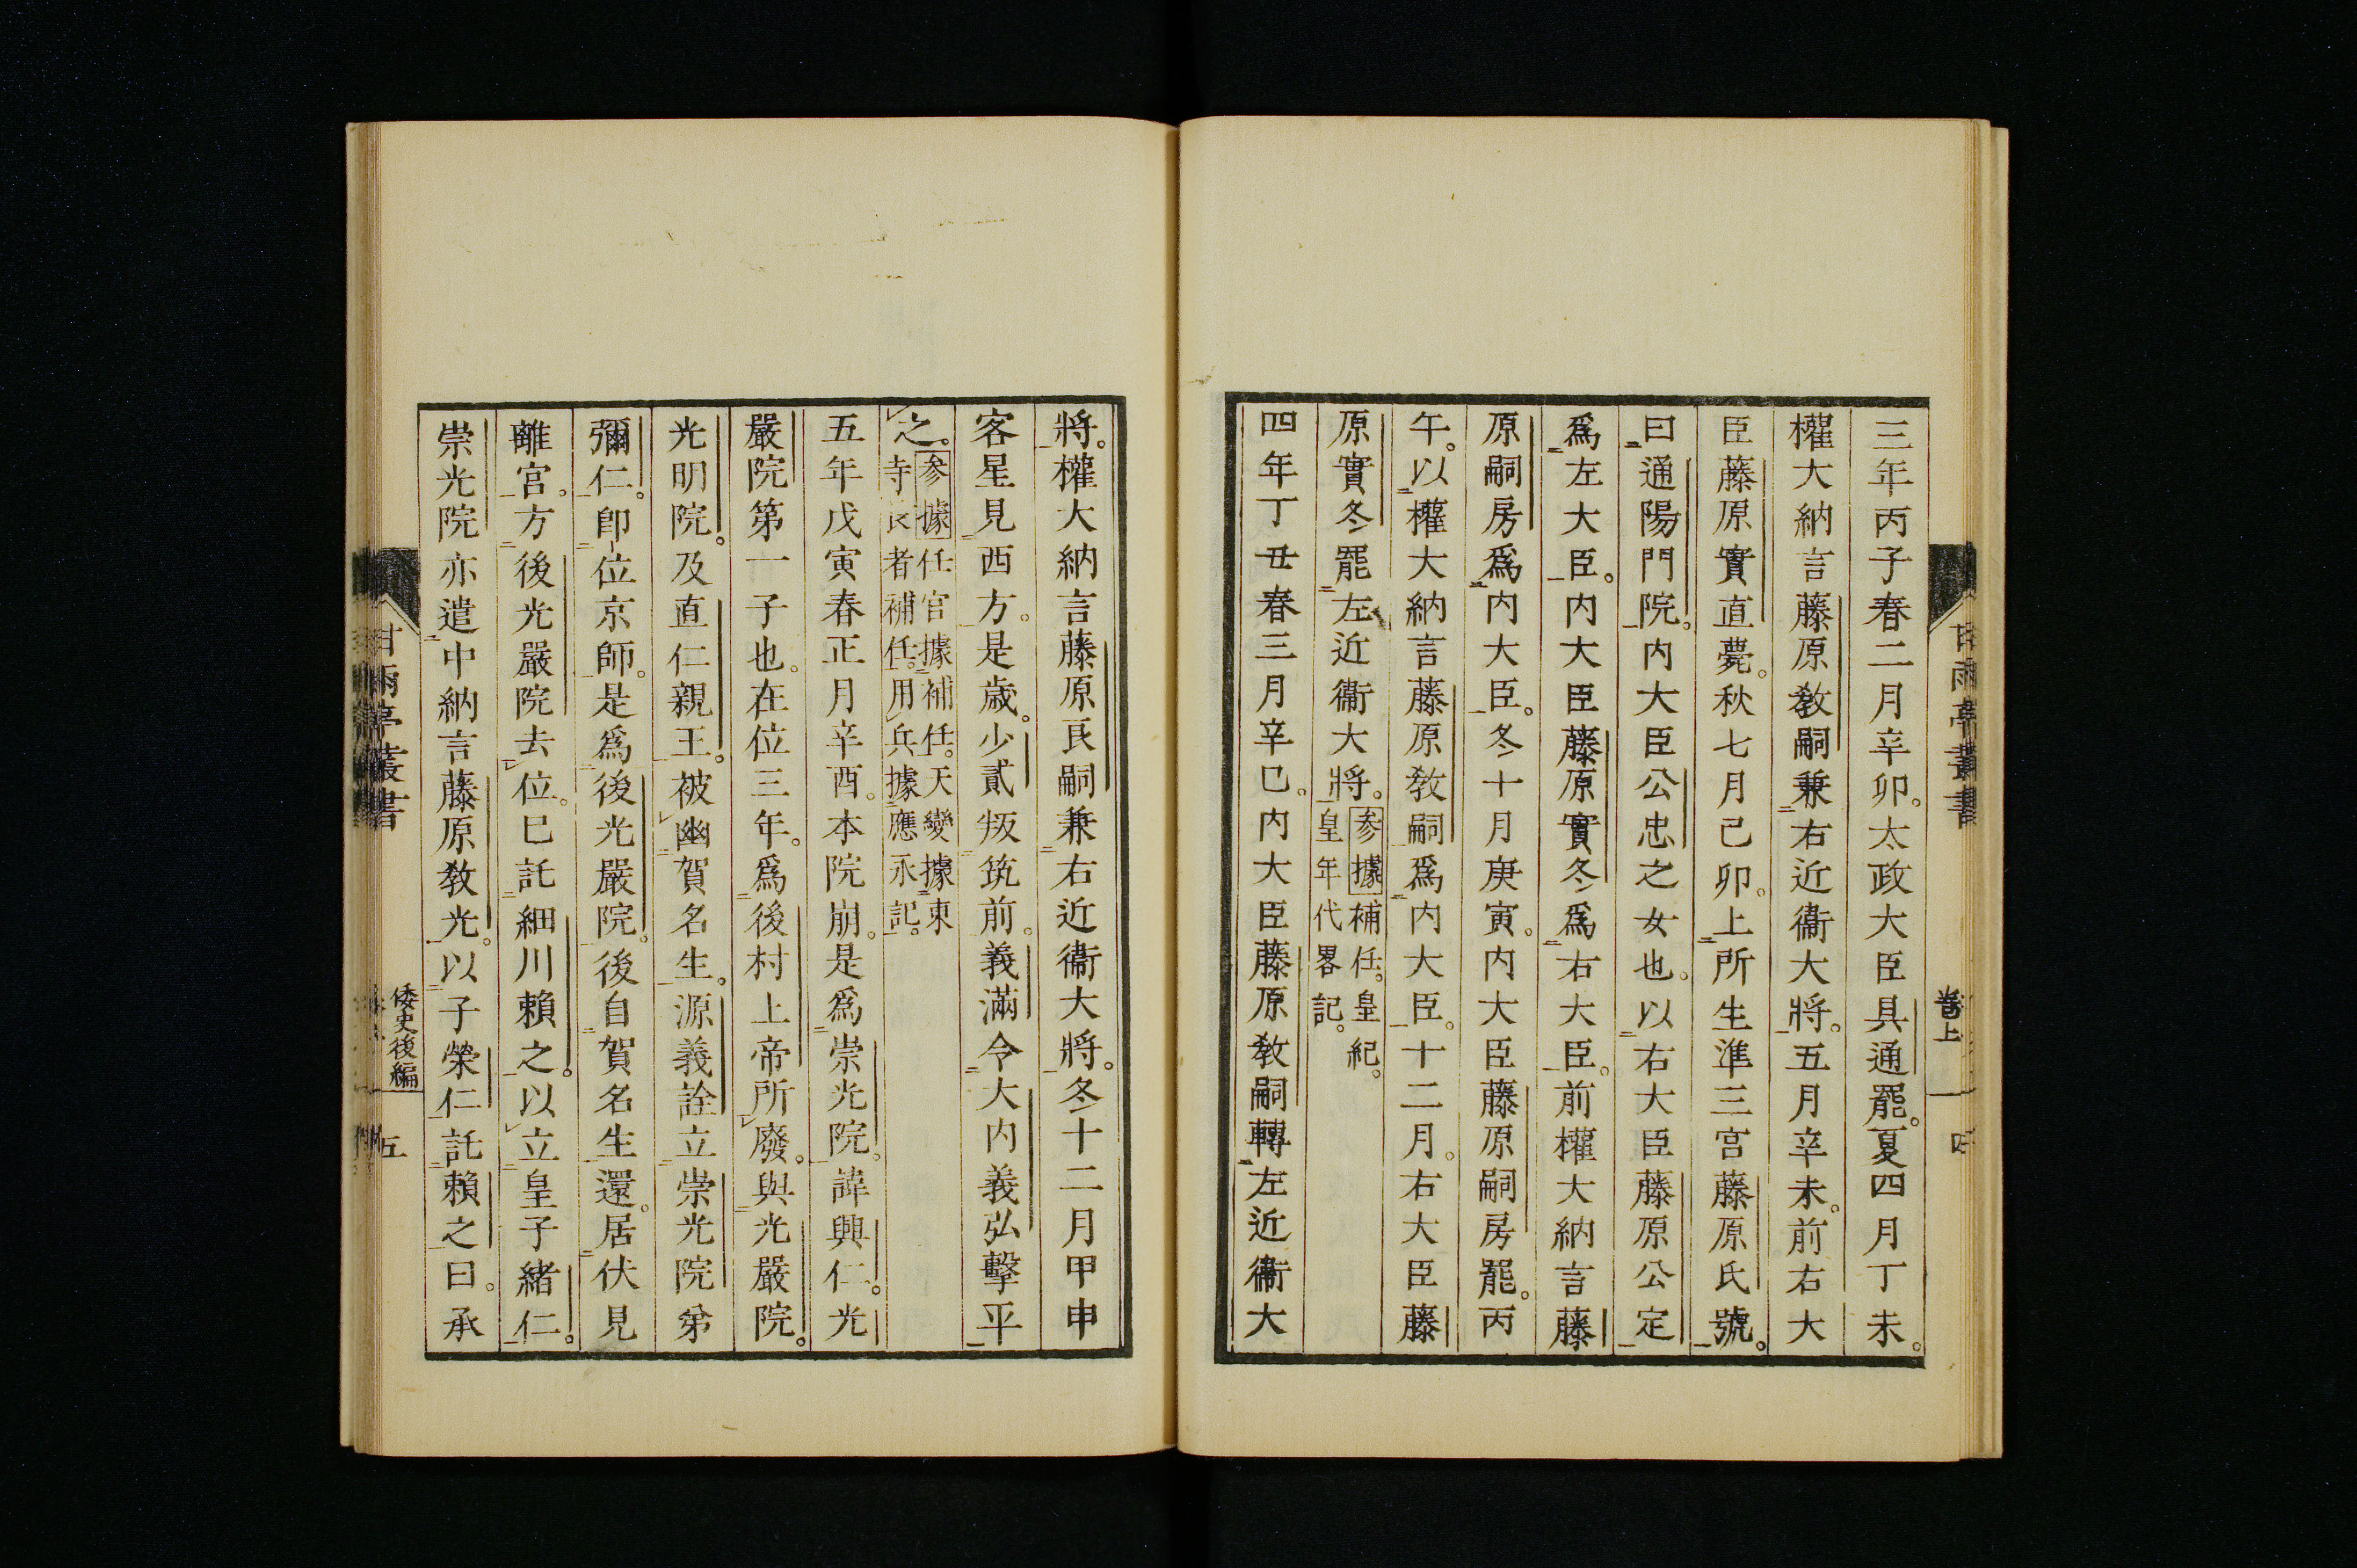 三年丙子春二月辛卯。太政大臣具通罷。夏四月丁未。
權大納言藤原敎嗣兼右近衞大將。五月辛未。前右大
臣藤原實直薨。秋七月己卯。上所生準三宮藤原氏號。
曰通陽門院。內大臣公忠之女也。以右大臣藤原公定
爲左大臣。內大臣藤原實冬爲右大臣。前權大納言藤
原嗣房爲內大臣。冬十月庚寅。內大臣藤原嗣房罷。丙
午。以權大納言藤原敎嗣爲內大臣。十二月。右大臣藤
原實冬罷左近衞大將。参據補任。皇紀。
皇年代畧記。
四年丁丑春三月辛巳。內大臣藤原敎嗣轉左近衞大
卷上
四
將。權大納言藤原良嗣兼右近衞大將。冬十二月甲申
客星見西方。是歲。少貳叛筑前。義滿令大內義弘擊平
之。参據任官據補任。天變據東
寺長者補任。用兵據應永記。
五年戊寅春正月辛酉。本院崩。是爲崇光院。諱興仁。光
嚴院第一子也。在位三年。爲後村上帝所廢。與光嚴院。
光明院。及直仁親王。被幽賀名生。源義詮立崇光院弟
彌仁。卽位京師。是爲後光嚴院。後自賀名生還。居伏見
離宮。方後光嚴院去位。巳託細川賴之。以立皇子緖仁。
崇光院亦遣中納言藤原敎光。以子榮仁託賴之曰。承
甘雨亭叢書
倭史後編
五